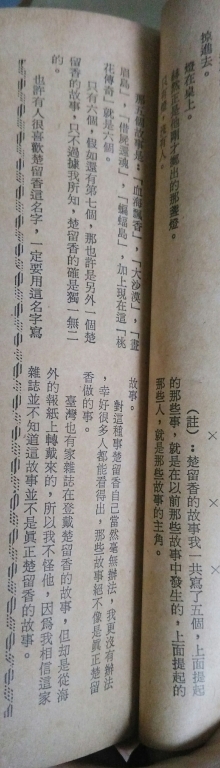 掠過去。
燈在桌上。
赫然正是他剛才擲出的那盞燈。
只見燈，沒有人。
× × ×
（註）：楚留香的故事我一共寫了五個，上面提起
的那些事，就是在以前那些故事中發生的，上面提起的
那些人，就是那些故事的主角。
那五個故事是：「血海飄香」，「大沙漠」，「畫
眉鳥」，「借屍還魂」，「蝙蝠島」，加上現在這「桃
花傳奇」就是六個。
只有六個，假如還有第七個，那也許是另外一個楚
留香的故事，只不過據我所知，楚留香的確是獨一無二
的。
也許有人很喜歡楚留香這名字，一定要用這名字寫
故事。
對這種事楚留香自己當然毫無辦法，我更沒有辦法
，幸好很多人都能看得出，那些故事絕不像是真正楚留
香做的事。
臺灣也有家雜誌在登載楚留香的故事，但却是從海
外的報紙上轉載來的，所以我不怪他，因為我相信這家
雜誌並不知道這故事並不是真正楚留香的故事。